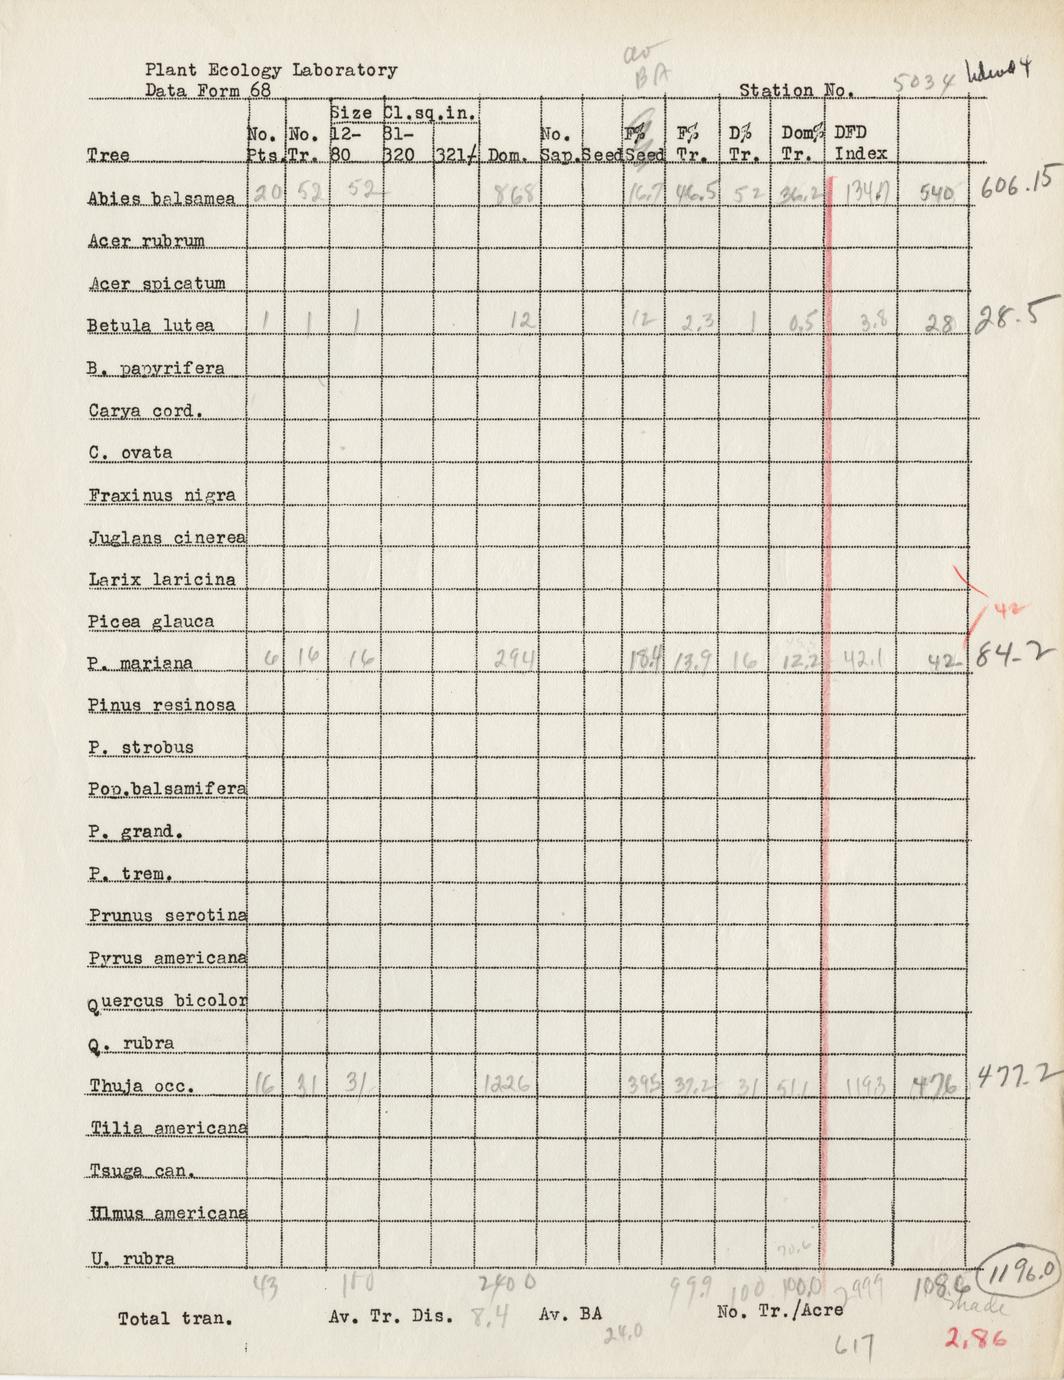 av
BA
Plant Ecology Laboratory
Data Form 68 Station No. 5034
Size Cl.sq.in.
No. No. 12- 81- No. F% F% D% Dom% DFD
Tree Pts. Tr. 80 320 321/ Dom. Sap. Seed Seed Tr. Tr. Tr. Index
Abies balsamea 20 52 52 868 16.7 46.5 52 36.2 134.7 540 606.15
Acer rubrum
Acer spicatum
Betula lutea 1 1 1 12 12 2.3 1 0.5 3.8 28 28.5
B. papyrifera
Carya cord.
C. ovata
Fraxinus nigra
Juglans cinerea
Larix laricina
42
Picea glauca
P. mariana 6 16 16 294 18.4 13.9 16 12.2 42.1 42 84.2
Pinus resinosa
P. strobus
Pop.balsamifera
P. grand.
P. trem.
Prunus serotina
Pyrus americana
Quercus bicolor
Q. rubra
Thuja occ. 16 31 31 1226 39.5 37.2 31 51.1 119.3 476 477.2
Tilia americana
Tsuga can.
Ulmus americana
U. rubra
43 100 2400 99.9 100 100.0 299.9 1086 1196.0
Total tran. Av. Tr. Dis. 8.4 Av. BA 24.0 No. Tr./Acre 617
shade
2.86